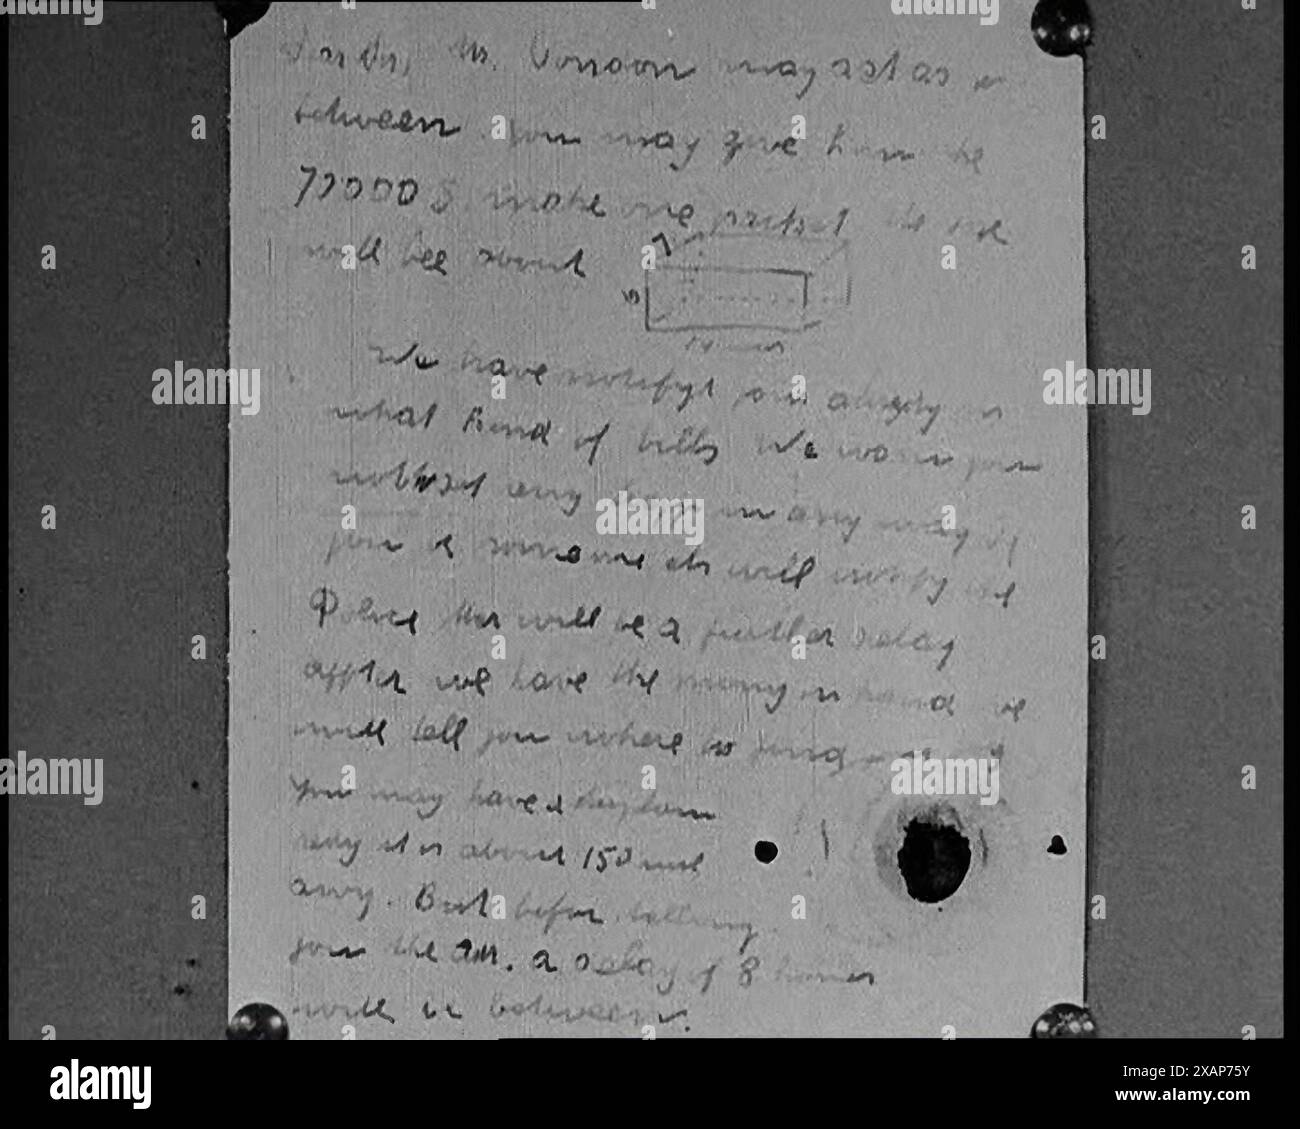 Dear Sir, Mr. Condon may act as go
between. You may give him the
70000 $. make one packet. the size
will bee about
7
6
14 inch
We have notifyt you allredy in
what kind of bills. We warn you
not to set any trap in any way. If
you or someone els will notify the
Police ther will be a further delay
affter we have the mony in hand we
will tell you where to find your boy
You may have a airplane
redy it is about 150 mil
awy. But befor telling
you the adr. a delay of 8 houers
will be between.
a alamy
alamy
Image ID: 2XAP75Y
www.alamy.com